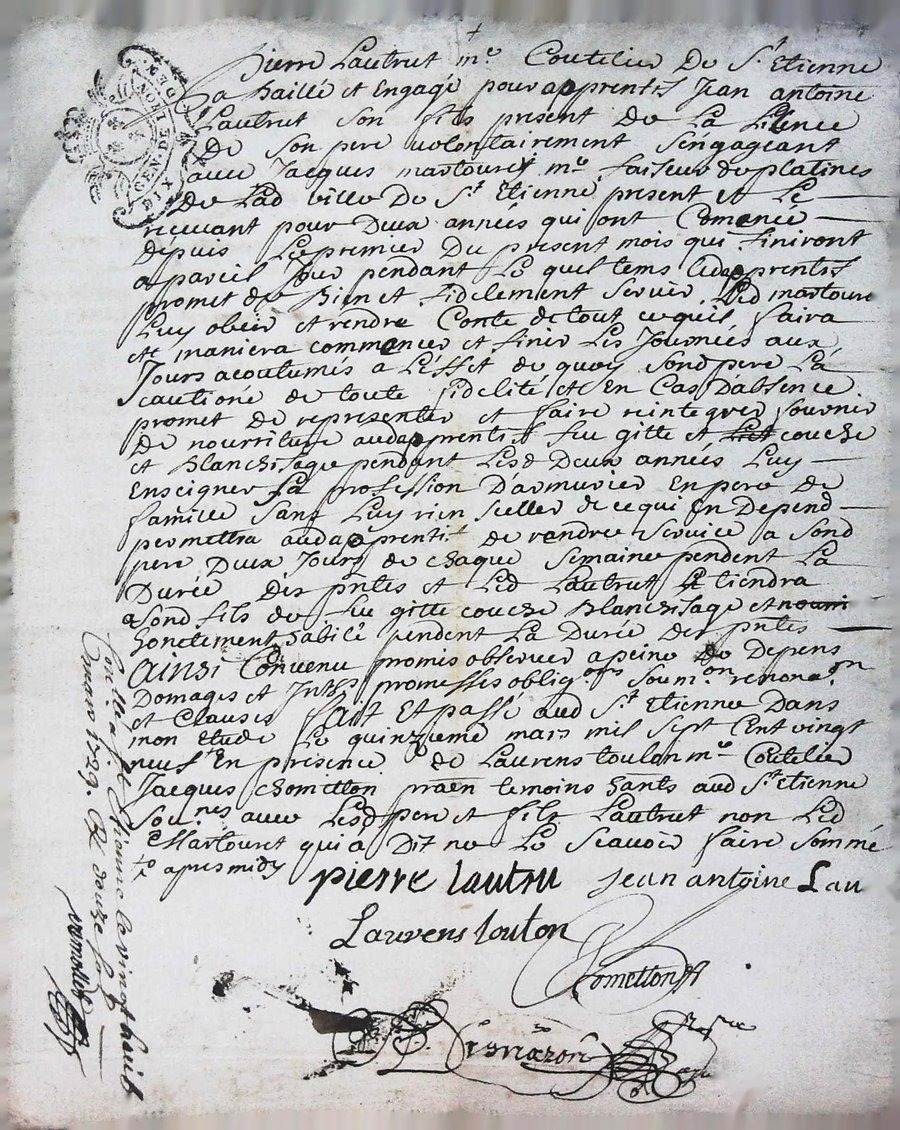 Pierre Lautrut me Coutelier De St Etienne
a baillé et Engagé pour apprentif Jean antoine
Lautrut son fils present De La Licence
De Son pere volontairement S'engageant
avec Jacques martouret me faiseur de platines
De Lad ville De St Etienne present et Le
recevant pour Deux années qui ont Comencé
depuis Le premier Du present mois qui finiront
a pareil Jour pendant Le quel tems led apprentif
promet de Bien et fidelement Servir Led martouret
Luy obeir et rendre Conte de tout ce quil faira
et maniera commencer et finir Les Journées aux
Jours acoutumés a L'effet de quoy Sond pere La
cautioné de toute fidelité et En Cas D'absence
promet De representer et faire reintegrer fournir
De nourriture aud apprentif feu gitte et couche
et Blanchisage pendant Lesd Deux années Luy
Enseigner Sa profession D'armurier En pere de
famille Sans Luy rien Seller de ce qui En Depend
permettra aud apprentif de rendre Service a Sond
pere Deux Jours de chaque Semaine pendent La
Durée Des pntes et Led Lautrut tiendra
a Sond fils de feu gitte couche Blanchisage et nourri
honetement habillé pendent La Durée Des pntes
Ainsi Convenu promis observer a peine De Depens
Domages et Intts promesses obligons Soumon renonon
et Clauses Fait Et passé aud St Etienne Dans
mon Etude Le quinzieme mars mil Sept Cent vingt
neuf En presence De Laurens toulon me Coutelier
Jacques chometton praen temoins hants aud St Etienne
Sounes avec Lesd pere et fils Lautrut non Led
Martouret qui a Dit ne Le Scavoir faire Sommé
apres midy
pierre lautru Jean antoine Lau
Laurens touton
Chometton
Conllé a St Etienne le vingt huit
mars 1729 R douze s
GEN. DE LION
DIX DEN